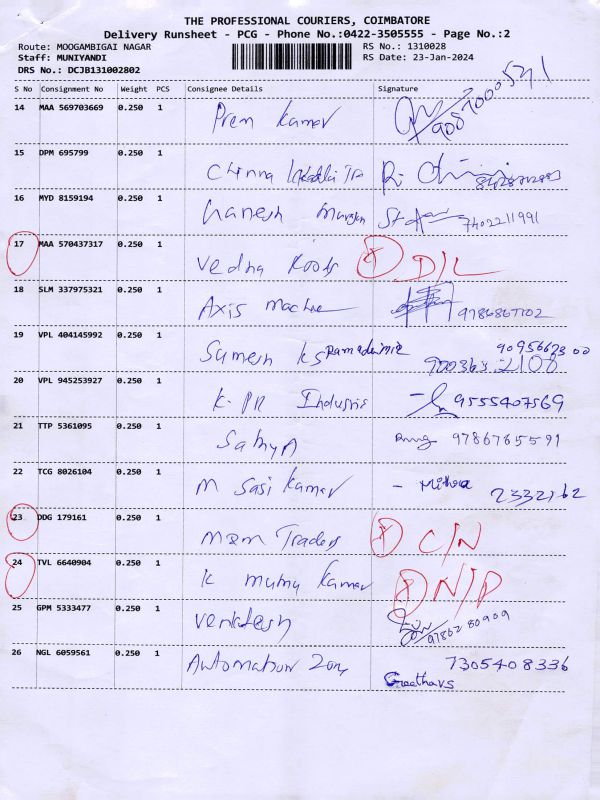 THE PROFESSIONAL COURIERS, COIMBATORE
Delivery Runsheet - PCG - Phone No.:0422-3505555 - Page No.:2
Route: MOOGAMBIGAI NAGAR RS No.: 1310028
Staff: MUNIYANDI RS Date: 23-Jan-2024
DRS No.: DCJB131002802
S No Consignment No Weight PCS Consignee Details Signature
14 MAA 569703669 0.250 1 Prem Kamar
15 DPM 695799 0.250 1 Chinna
16 MYD 8159194 0.250 1 Ganesh Murugan 7402211991
17 MAA 570437317 0.250 1 Vedha Foods D/L
18 SLM 337975321 0.250 1 Axis 9786867102
19 VPL 404145992 0.250 1 Sumesh KS
20 VPL 945253927 0.250 1 K. PR Industris 9555407569
21 TTP 5361095 0.250 1 Sathya 9786765591
22 TCG 8026104 0.250 1 M Sasi Kamar - Mithra 2332162
23 DDG 179161 0.250 1 M&M Traders C/N
24 TVL 6640904 0.250 1 K Muthu Kamar N/P
25 GPM 5333477 0.250 1 Venkatesh 9786280909
26 NGL 6059561 0.250 1 Automation Zone 7305408336